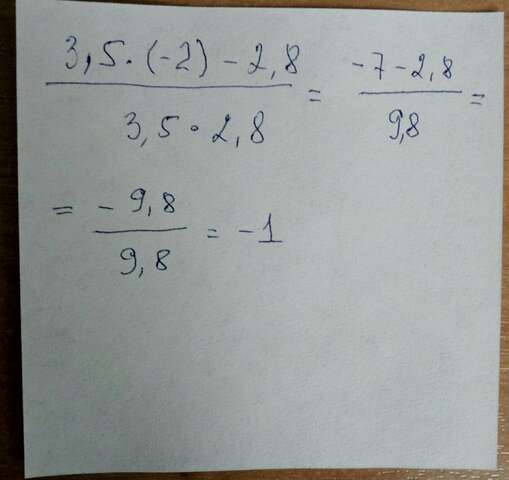 3,5·(-2)-2,8 / 3,5·2,8 = -7-2,8 / 9,8 =
= -9,8 / 9,8 = -1